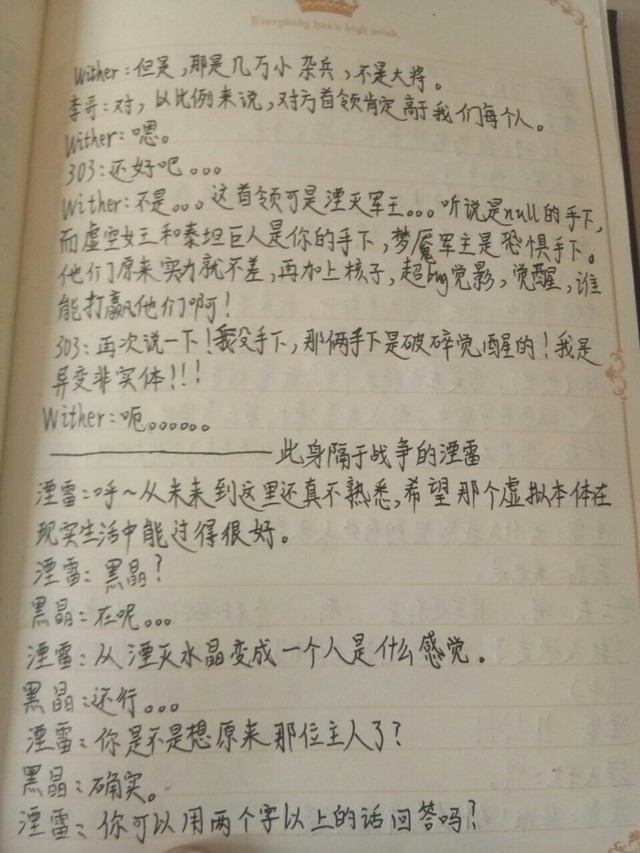 Everybody has a high mind.
Wither：但是，那是几万小杂兵，不是大将。
李哥：对，以比例来说，对方首领肯定高于我们每个人。
Wither：嗯。
303：还好吧。。。
Wither：不是。。。这首领可是湮灭军主。。。听说是null的手下，
而虚空女王和泰坦巨人是你的手下，梦魇军主是恐惧手下。
他们原来实力就不差，再加上核子，超bug觉影，觉醒，谁
能打赢他们啊！
303：再次说一下！我没手下，那俩手下是破碎觉醒的！我是
异变非实体！！！
Wither：呃。。。。。。
——————————此身隔于战争的湮雷
湮雷：呼～从未来到这里还真不熟悉，希望那个虚拟本体在
现实生活中能过得很好。
湮雷：黑晶？
黑晶：在呢。。。
湮雷：从湮灭水晶变成一个人是什么感觉。
黑晶：还行。。。
湮雷：你是不是想原来那位主人了？
黑晶：确实。
湮雷：你可以用两个字以上的话回答吗？